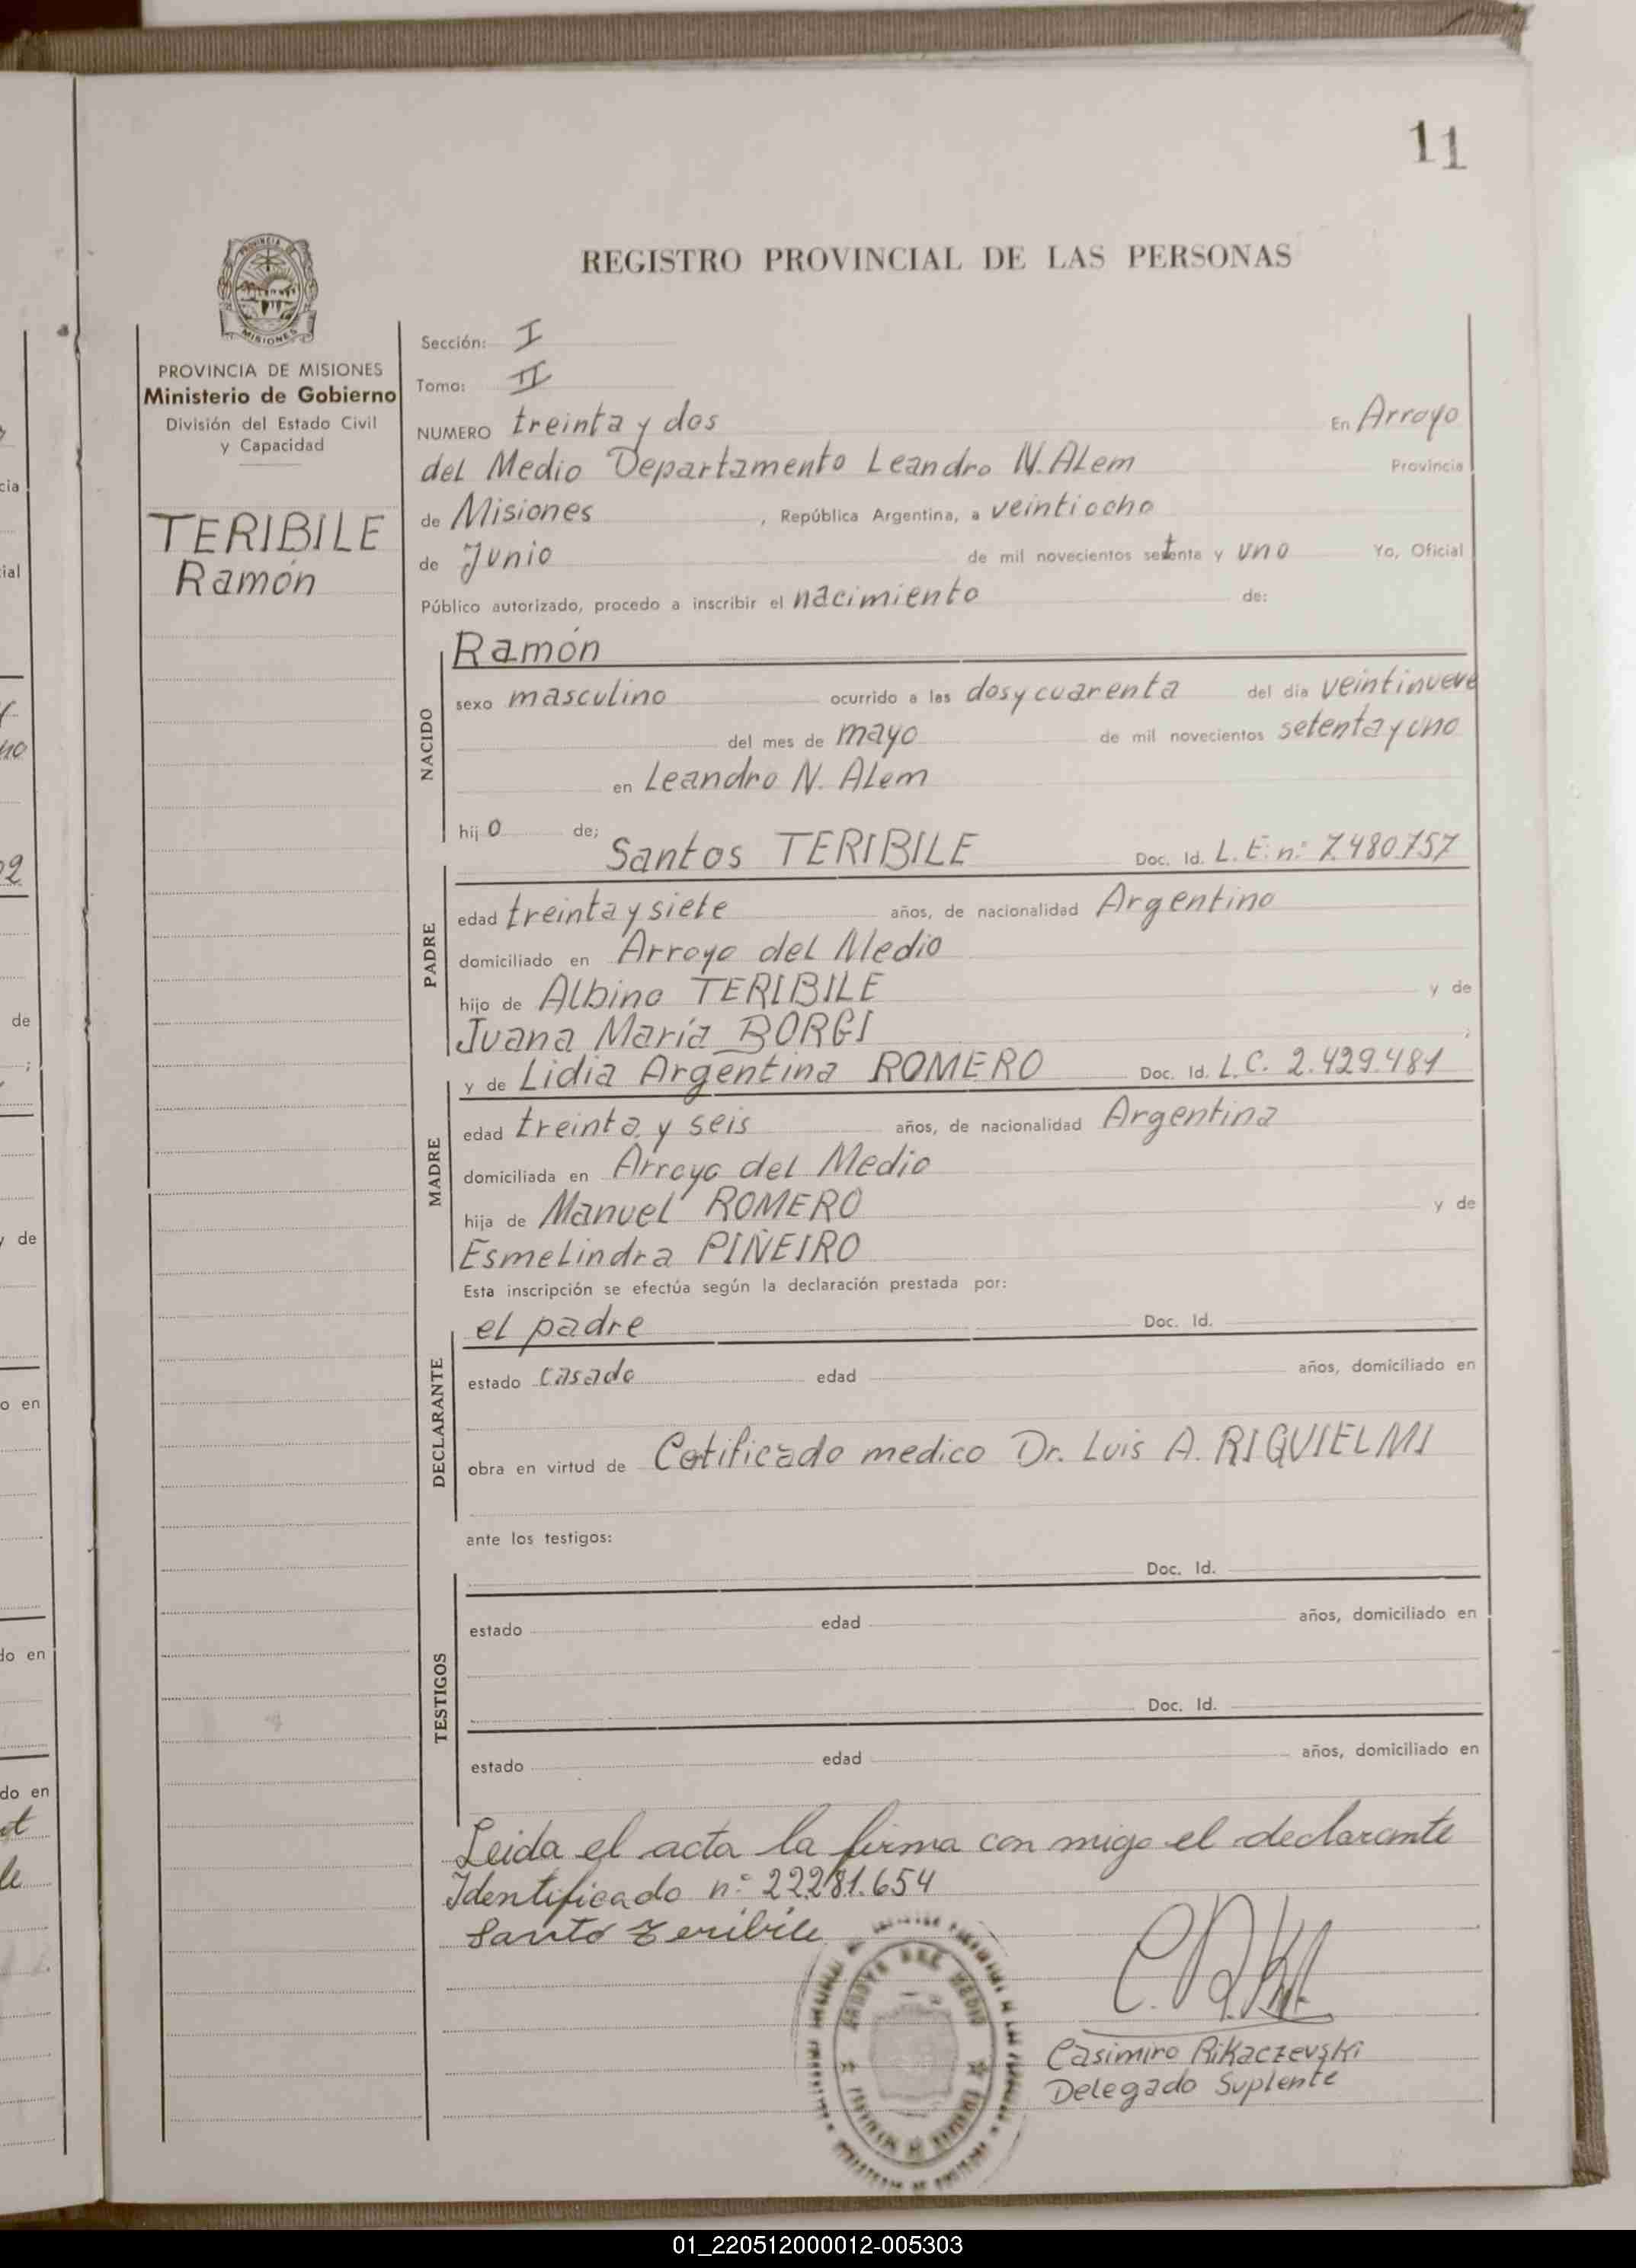 11
REGISTRO PROVINCIAL DE LAS PERSONAS
MISIONES
PROVINCIA DE MISIONES
Ministerio de Gobierno
División del Estado Civil
y Capacidad
TERIBILE
Ramón
Sección: I
Tomo: II
NUMERO treinta y dos En Arroyo
del Medio Departamento Leandro N. ALem Provincia
de Misiones , República Argentina, a veintiocho
de Junio de mil novecientos setenta y uno Yo, Oficial
Público autorizado, procedo a inscribir el nacimiento de:
NACIDO
Ramón
sexo masculino ocurrido a las dos y cuarenta del día veintinueve
del mes de mayo de mil novecientos setenta y uno
en Leandro N. ALem
hijo de; Santos TERIBILE Doc. Id. L. E. n.º 7.480.757
PADRE
edad treinta y siete años, de nacionalidad Argentino
domiciliado en Arroyo del Medio
hijo de Albino TERIBILE y de
Juana María BORGI ;
y de Lidia Argentina ROMERO Doc. Id. L.C. 2.429.481
MADRE
edad treinta y seis años, de nacionalidad Argentina
domiciliada en Arroyo del Medio
hija de Manuel ROMERO y de
EsmeLindra PIÑEIRO
Esta inscripción se efectúa según la declaración prestada por:
DECLARANTE
el padre Doc. Id.
estado casado edad años, domiciliado en
obra en virtud de Cetificado medico Dr. Luis A. RIQUIELMI
ante los testigos:
TESTIGOS
Doc. Id.
estado edad años, domiciliado en
Doc. Id.
estado edad años, domiciliado en
Leida el acta la firma con migo el declarante
Identificado n.º 22281.654
Santo Teribile
ARROYO DEL MEDIO
Casimiro Rikaczevski
Delegado Suplente
01_220512000012-005303